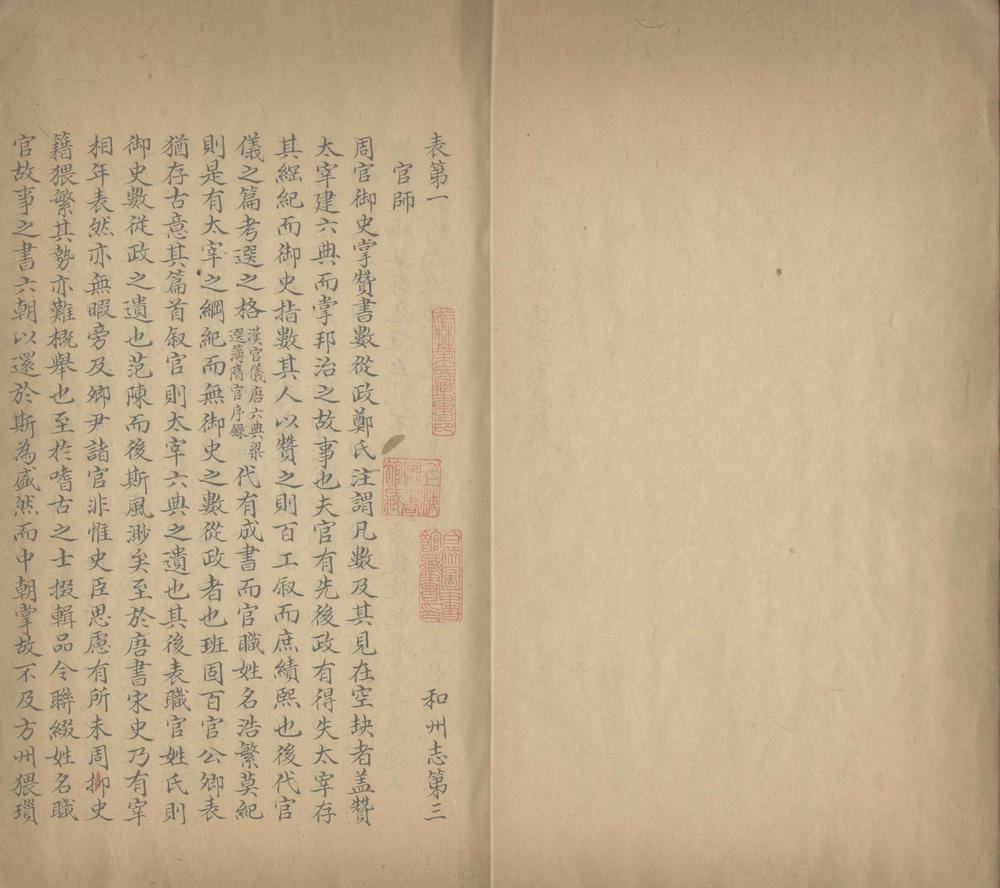 表第一　和州志第三
官師
周官御史掌贊書數從政鄭氏注謂凡數及其見在空缺者盖贊
太宰建六典而掌邦治之故事也夫官有先後政有得失太宰存
其綱紀而御史指數其人以贊之則百工叙而庶績熙也後代官
儀之篇考選之格漢官儀唐六典梁選簿隋官序錄代有成書而官職姓名浩繁莫紀
則是有太宰之綱紀而無御史之數從政者也班固百官公卿表
猶存古意其篇首叙官則太宰六典之遺也其後表職官姓氏則
御史數從政之遺也范陳而後斯風渺矣至於唐書宋史乃有宰
相年表然亦無暇旁及卿尹諸官非惟史臣思慮有所未周抑史
籍猥繁其勢亦難概舉也至於嗜古之士掇輯品令聯綴姓名職
官故事之書六朝以還於斯為盛然而中朝掌故不及方州猥瑣